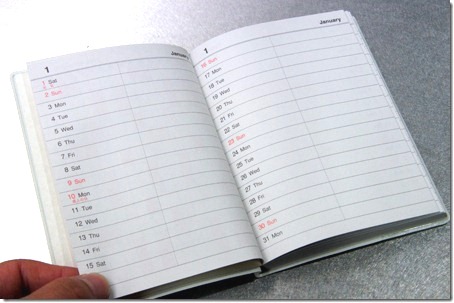 January
1
1 Sat
2 Sun
3 Mon
4 Tue
5 Wed
6 Thu
7 Fri
8 Sat
9 Sun
10 Mon
11 Tue
12 Wed
13 Thu
14 Fri
15 Sat
January
1
16 Sun
17 Mon
18 Tue
19 Wed
20 Thu
21 Fri
22 Sat
23 Sun
24 Mon
25 Tue
26 Wed
27 Thu
28 Fri
29 Sat
30 Sun
31 Mon